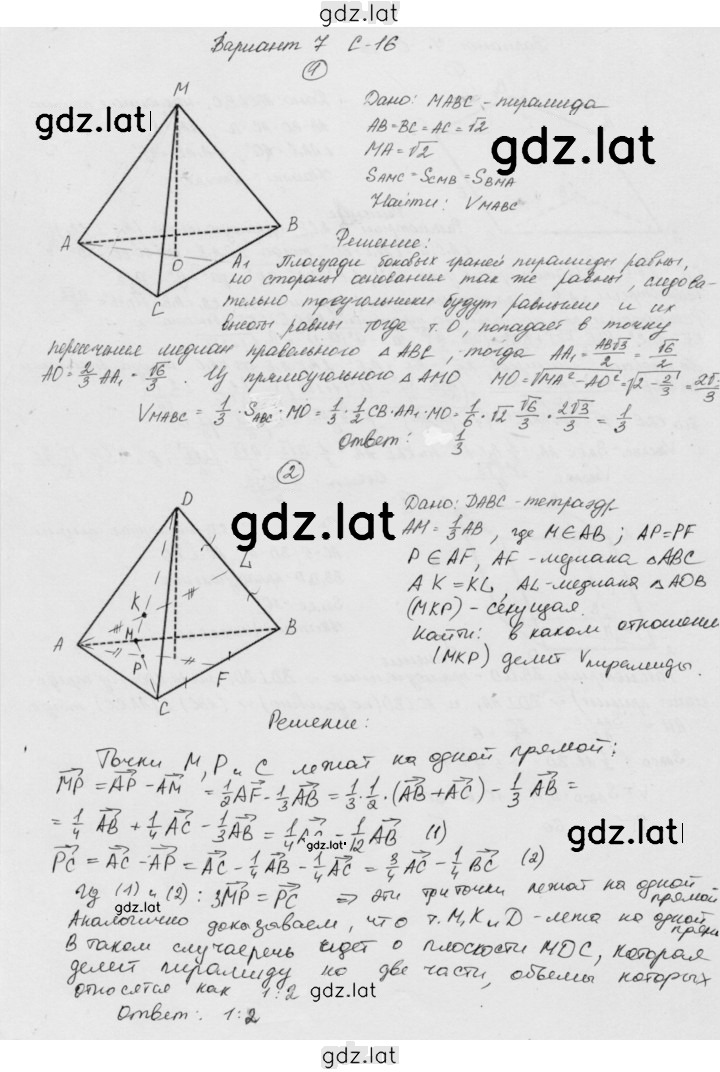 gdz.lat
Вариант 7 С-16
1
M
A
B
O
C
A₁
gdz.lat
gdz.lat
Дано: MABC - пирамида
AB=BC=AC=√2
MA=√2
S_AMC = S_CMB = S_BMA
Найти: V_MABC
Решение:
Площади боковых граней пирамиды равны,
но стороны основания так же равны, следова-
тельно треугольники будут равными и их
высоты равны тогда т. O, попадает в точку
пересечения медиан правильного △ABC, тогда AA₁ = AB√3/2 = √6/2
AO = 2/3 AA₁ = √6/3. Из прямоугольного △AMO MO = √(MA² - AO²) = √(2 - 2/3) = 2√3/3
V_MABC = 1/3 · S_ABC · MO = 1/3 · 1/2 CB · AA₁ · MO = 1/6 · √2 √6/3 · 2√3/3 = 1/3
Ответ: 1/3
2
D
L
K
A
M
B
P
C
F
gdz.lat
gdz.lat
Дано: DABC - тетраэдр
AM = 1/3 AB, где M∈AB; AP=PF
P∈AF, AF - медиана △ABC
AK=KL, AL-медиана △AOB
(MKP) - секущая.
Найти: в каком отношении
(MKP) делит V пирамиды.
Решение:
Точки M, P и C лежат на одной прямой:
MP = AP - AM = 1/2 AF - 1/3 AB = 1/3 · 1/2 · (AB + AC) - 1/3 AB =
= 1/4 AB + 1/4 AC - 1/3 AB = 1/4 AC - 1/12 AB (1)
gdz.lat
PC = AC - AP = AC - 1/4 AB - 1/4 AC = 3/4 AC - 1/4 BC (2)
Из (1) и (2): 3MP = PC ⇒ эти три точки лежат на одной прямой
gdz.lat
Аналогично доказываем, что т. M, K и D - лежа на одной прям
В таком случае речь идет о плоскости MDC, которая
делит пирамиду на две части, объемы которых
относятся как 1:2
gdz.lat
Ответ: 1:2
gdz.lat